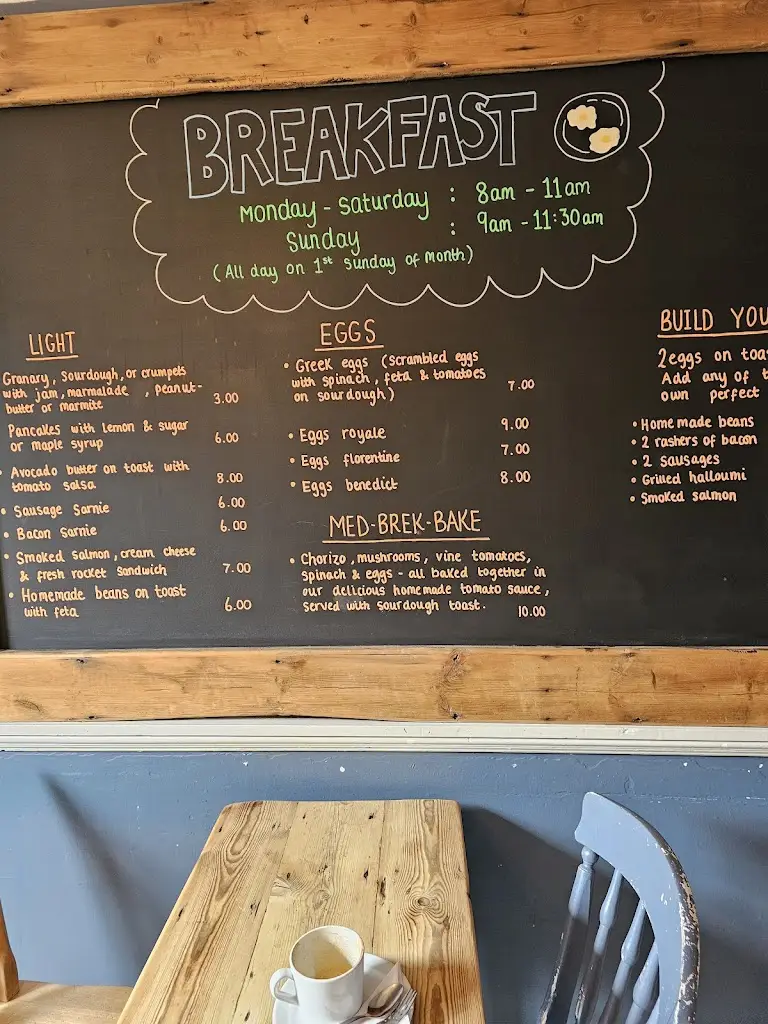 BREAKFAST
Monday - Saturday : 8am - 11am
Sunday : 9am - 11:30am
(All day on 1st Sunday of Month)
LIGHT
Granary, Sourdough, or crumpets
with jam, marmalade , peanut-
butter or marmite 3.00
Pancakes with lemon & sugar
or maple syrup 6.00
• Avocado butter on toast with
tomato salsa 8.00
• Sausage Sarnie 6.00
• Bacon Sarnie 6.00
• Smoked salmon, cream cheese
& fresh rocket sandwich 7.00
• Homemade beans on toast
with feta 6.00
EGGS
• Greek eggs (scrambled eggs
with spinach, feta & tomatoes
on sourdough) 7.00
• Eggs royale 9.00
• Eggs florentine 7.00
• Eggs benedict 8.00
MED-BREK-BAKE
• Chorizo, mushrooms, vine tomatoes,
spinach & eggs - all baked together in
our delicious homemade tomato sauce,
served with sourdough toast. 10.00
BUILD YOU
2eggs on toa
Add any of t
own perfect
• Home made beans
• 2 rashers of bacon
• 2 sausages
• Grilled halloumi
• Smoked salmon